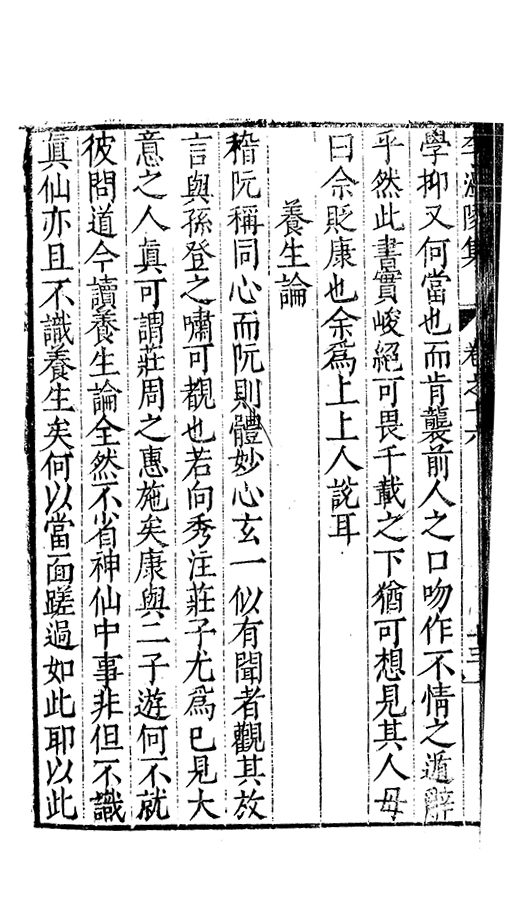 李溫陵集 卷之十六
學抑又何當也而肯襲前人之口吻作不情之遁辭
乎然此書實峻絕可畏千載之下猶可想見其人毋
曰余貶康也余為上上人說耳
養生論
嵇阮稱同心而阮則體妙心玄一似有聞者觀其放
言與孫登之嘯可覩也若向秀注莊子尤為已見大
意之人真可謂莊周之惠施矣康與二子遊何不就
彼問道今讀養生論全然不省神仙中事非但不識
真仙亦且不識養生矣何以當面蹉過如此耶以此